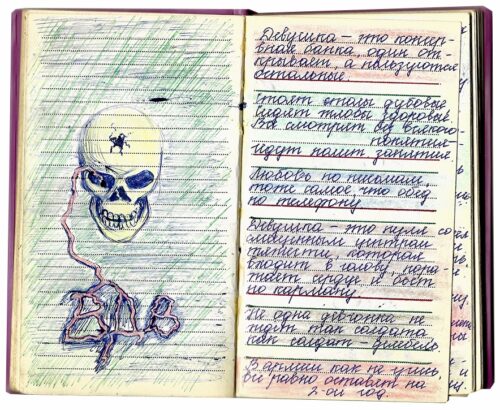 ВДВ
Девушка – это консер-
вная банка, один от-
крывает, а пользуются
остальные.
Стоят столы дубовые
сидят жлобы здоровые
Все смотрят без всякого
понятия –
идут полит. занятия.
Любовь по письмам,
тоже самое, что обед
по телефону
Девушка – это пуля со
смещенным центром
тяжести, которая
входит в голову, пора-
жает сердце и бьет
по карману.
Не одна девчонка не
ждет так солдата
как солдат – дембель.
В армии как не учись,
все равно оставят на
2-ой год.